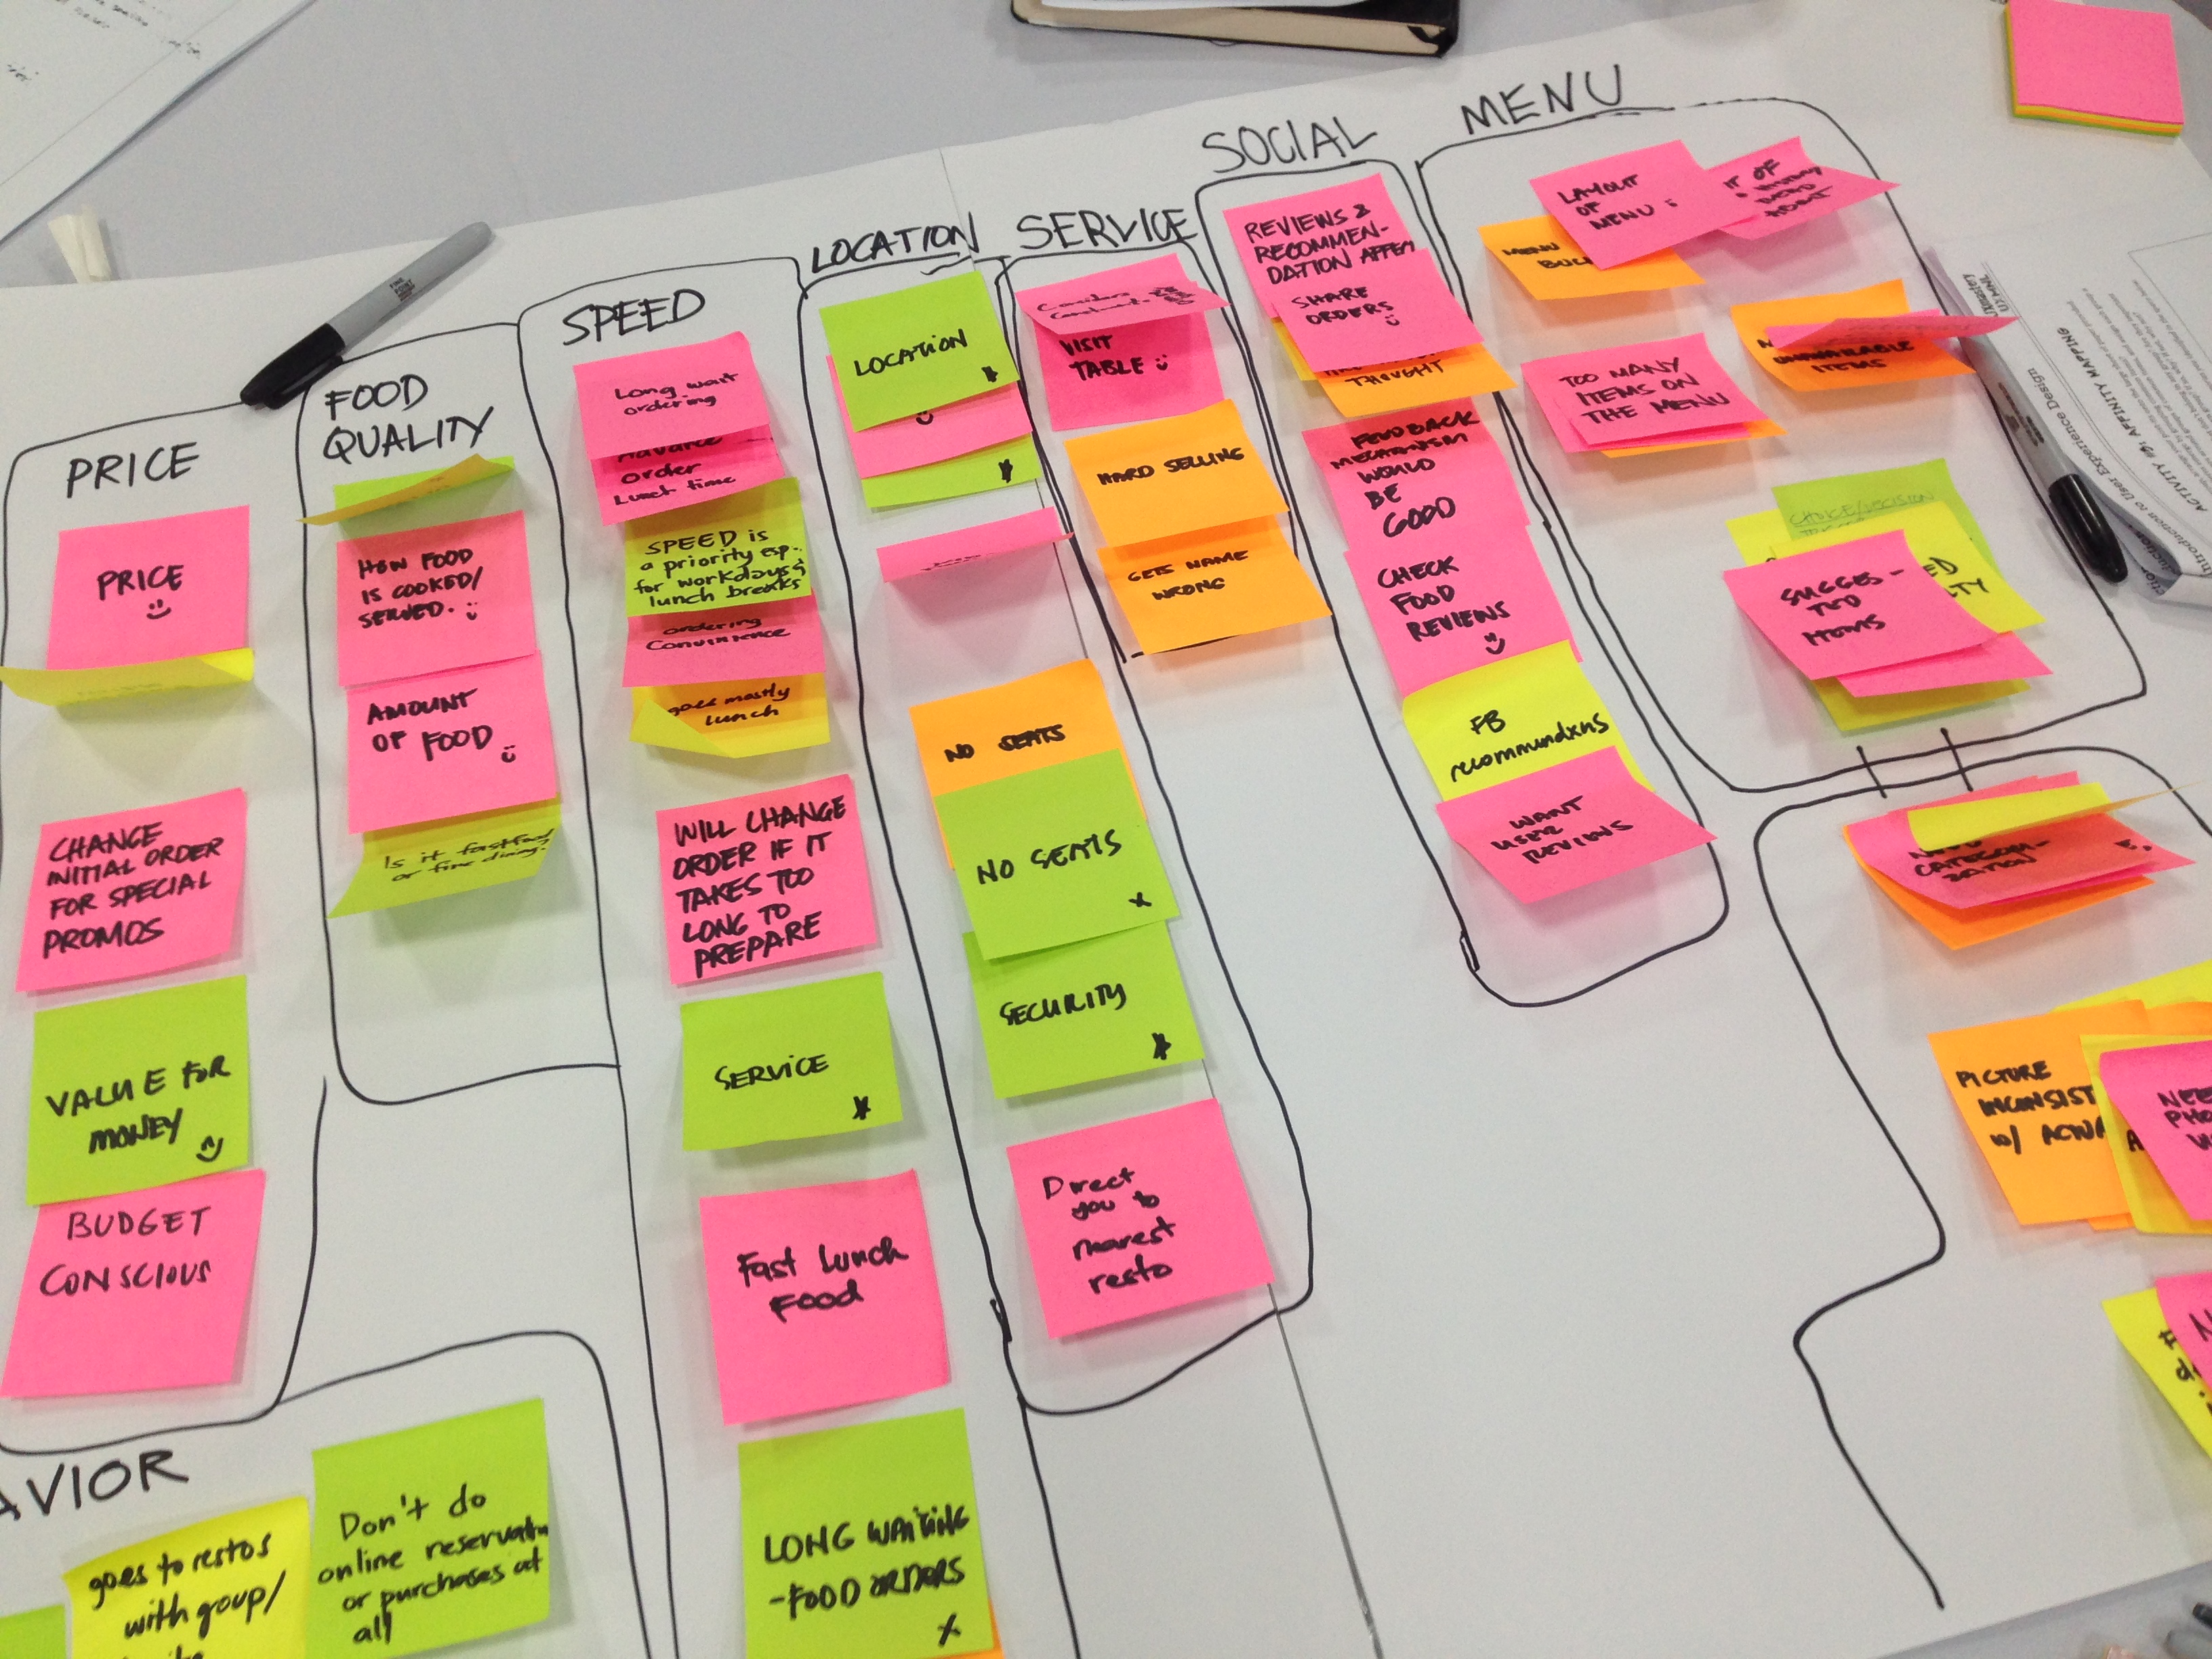 PRICE
PRICE
CHANGE
INITIAL ORDER
FOR SPECIAL
PROMOS
VALUE FOR
MONEY
BUDGET
CONSCIOUS
FOOD
QUALITY
HOW FOOD
IS COOKED/
SERVED.
AMOUNT
OF FOOD
Is it fastfood
or fine dining.
SPEED
Long wait
ordering
Advance
order
Lunch time
SPEED is
a priority esp.
for workdays &
lunch breaks
ordering
Convinience
goes mostly
lunch
WILL CHANGE
ORDER IF IT
TAKES TOO
LONG TO
PREPARE
SERVICE
Fast Lunch
Food
LONG WAITING
-FOOD ORDERS
X
LOCATION
LOCATION
NO SEATS
NO SEATS
x
SECURITY
Direct
you to
nearest
resto
SERVICE
VISIT
TABLE
HARD SELLING
GETS NAME
WRONG
SOCIAL
REVIEWS &
RECOMMEN-
DATION AFFECT
SHARE
ORDERS
THOUGHT
FEEDBACK
MECHANISM
WOULD
BE
GOOD
CHECK
FOOD
REVIEWS
FB
recommendxns
WANT
USER
REVIEWS
MENU
LAYOUT
OF
MENU
OF
MENU
TOO MANY
ITEMS ON
THE MENU
UNAVAILABLE
ITEMS
CHOICE/DECISION
SUGGES-
TED
ITEMS
NEED
CATEGORI-
ZATION
PICTURE
INCONSIST
w/ ACTUA
NEE
PHO
AVIOR
goes to restos
with group/
Don't do
online reservatn
or purchases at
all
Introduction to User Experience Design
ACTIVITY #3: AFFINITY MAPPING